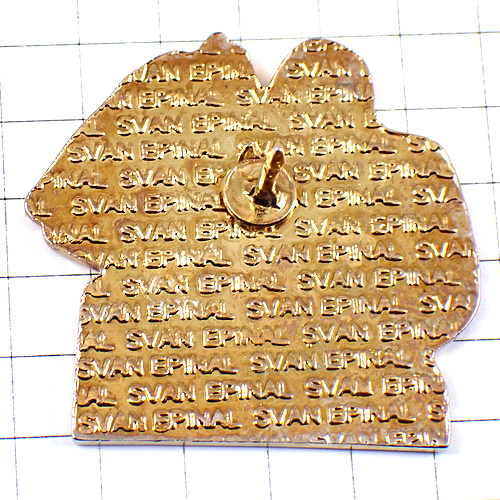 SVAN EPINAL
SVAN EPINAL
SVAN EPINAL SVAN
SVAN EPINAL SVAN EPINAL
EPINAL SVAN EPINAL SVAN EPINAL
SVAN EPINAL SVAN EPINAL
EPINAL SVAN EPINAL SVAN EPINAL
SVAN EPINAL SVAN EPINAL
SVAN EPINAL SVAN EPINAL SVAN
SVAN EPINAL SVAN EPINAL
SVAN EPINAL SVAN EPINAL
SVAN EPINAL SVAN EPINAL
SVAN EPINAL SVAN EPINAL
SVAN EPINAL SVAN EPINAL